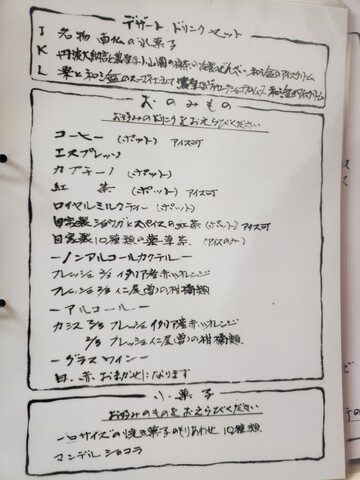 デザート ドリンクセット
I 名物 南仏の氷菓子
J 丹波大納言と 小山園の抹茶の ぜんざい 和三盆のアイスクリーム
K
L 栗と和三盆のスープ仕立て 和三盆アイスクリーム
おのみもの
お好みのドリンクをおえらびください
コーヒー (ポット) アイス可
エスプレッソ
カプチーノ (ポット)
紅 茶 (ポット) アイス可
ロイヤルミルクティー (ポット)
自家製 ショウガとスパイスの紅茶 (ポット) アイス可
自家製 10種類の薬草茶 (アイスのみ)
ーノンアルコールカクテルー
フレッシュ イタリア産赤オレンジ
フレッシュ 仁尾(曽)の柑橘類
ーアルコールー
カシス フレッシュイタリア産赤オレンジ
フレッシュ仁尾(曽)の柑橘類
ーグラスワインー
白、赤 おまかせになります
小 菓 子
お好みのものをおえらびください
一口サイズの焼き菓子のもりあわせ 10種類
マンデルショコラ